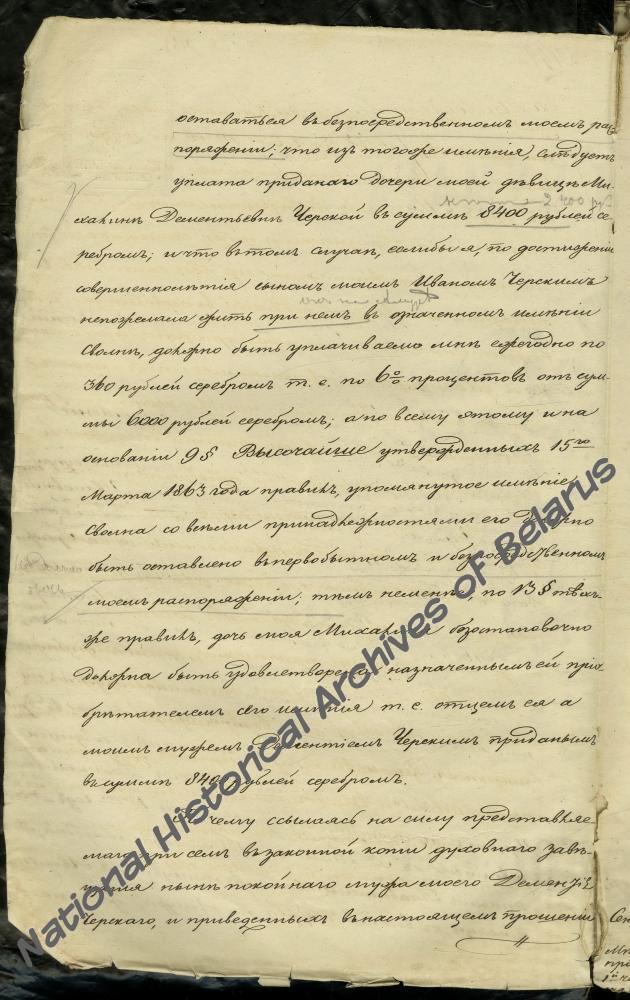 оставаться въ безпосредственномъ моемъ рас-
поряженіи; что изъ тогоже имѣнія, слѣдуетъ
уплата приданаго дочери моей дѣвицѣ Ми-
2400 руб
халинѣ Дементьевнѣ Черской въ суммѣ 8400 рублей се-
ребромъ; и что въ томъ случаѣ, еслибы я, по достиженіи
совершеннолѣтія сыномъ моимъ Иваномъ Черскимъ
непожелала жить при немъ въ означенномъ имѣніи
Свольнѣ, должно быть уплачиваемо мнѣ ежегодно по
360 рублей серебромъ т. е. по 6% процентовъ отъ сум-
мы 6000 рублей серебромъ; а по всему этому и на
основаніи 9§ Высочайше утвержденныхъ 15го
Марта 1863 года правилъ, упомянутое имѣніе
Свольна со всѣми принадлежностями его должно
быть оставлено въ первобытномъ и безпосредственномъ
моемъ распоряженіи; тѣмъ неменѣе, по 13§ тѣхъ-
же правилъ, дочь моя Михалина безостановочно
должна быть удовлетворена назначеннымъ ей прiо-
брѣтателемъ сего имѣнія т. е. отцемъ ея а
моимъ мужемъ Дементіемъ Черскимъ приданымъ
въ суммѣ 8400 рублей серебромъ.
По чему ссылаясь на силу представляе-
маго при семъ въ законной копіи духовнаго завѣ-
щанія нынѣ покойнаго мужа моего Дементія
Черскаго, и приведенныхъ въ настоящемъ прошеніи
National Historical Archives of Belarus